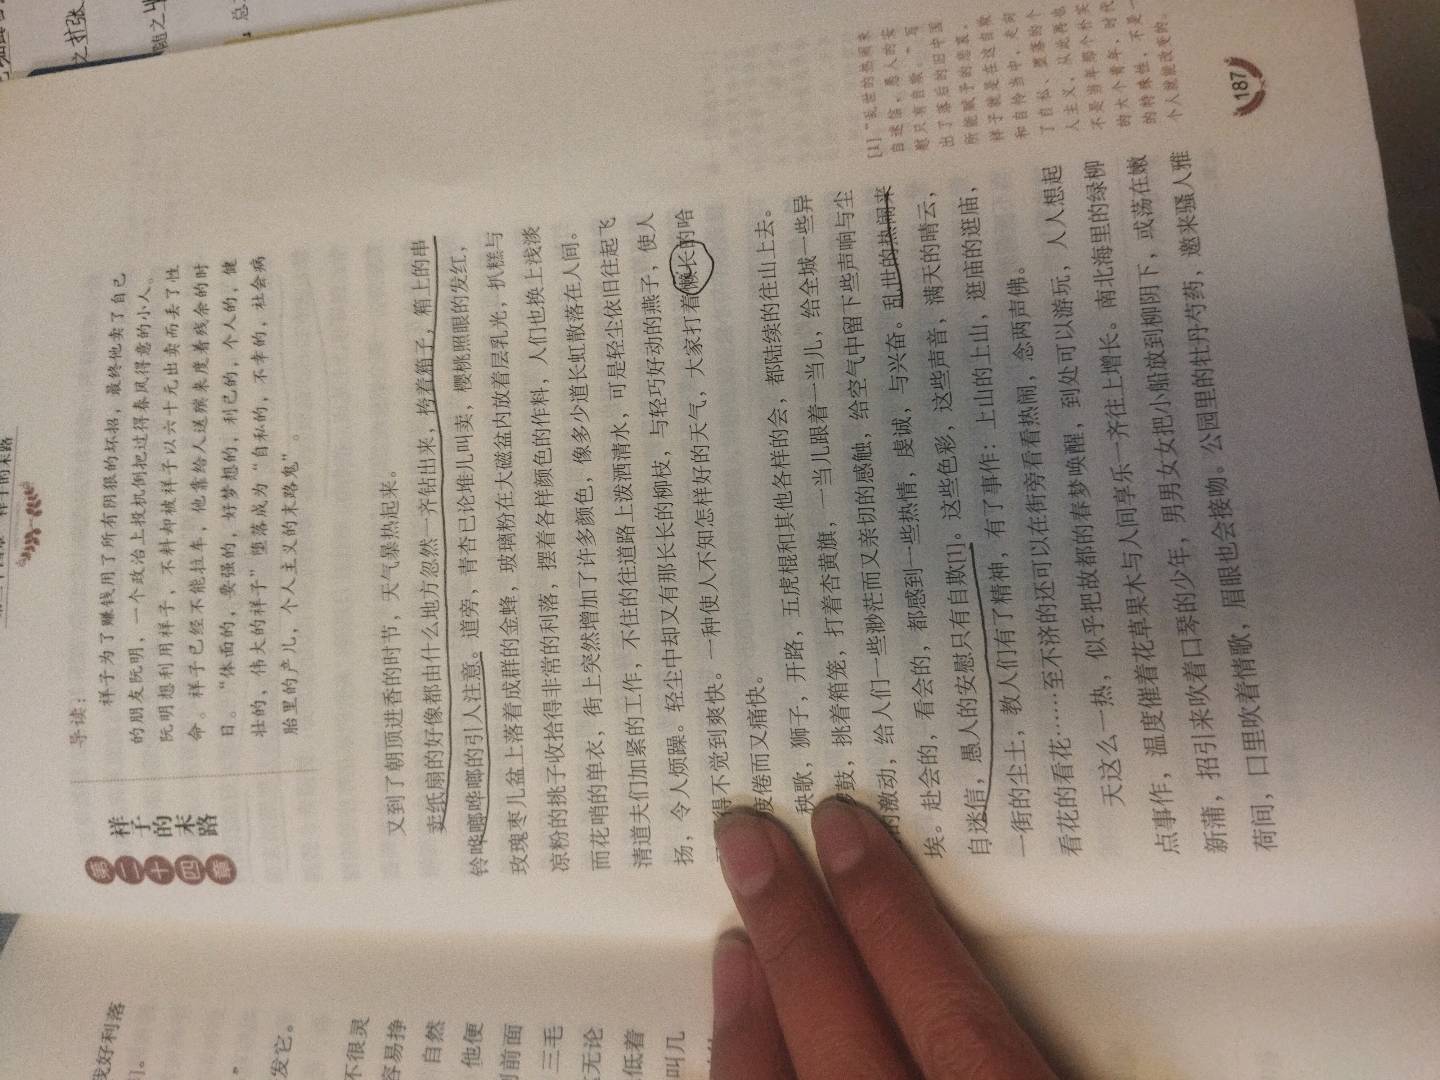 第二十四章
祥子的末路
导读：
祥子为了赚钱用了所有阴狠的坏招，最终他卖了自己
的朋友阮明，一个政治上投机倒把过得春风得意的小人。
阮明想利用祥子，不料却被祥子以六十元出卖而丢了性
命。祥子已经不能拉车，他靠给人送殡来度着残余的时
日。“体面的，要强的，好梦想的，利己的，个人的，健
壮的，伟大的祥子”堕落成为“自私的，不幸的，社会病
胎里的产儿，个人主义的末路鬼”。
又到了朝顶进香的时节，天气暴热起来。
卖纸扇的好像都由什么地方忽然一齐钻出来，挎着箱子，箱上的串
铃哗啷哗啷的引人注意。道旁，青杏已论堆儿叫卖，樱桃照眼的发红，
玫瑰枣儿盆上落着成群的金蜂，玻璃粉在大磁盆内放着层乳光，扒糕与
凉粉的挑子收拾得非常的利落，摆着各样颜色的作料，人们也换上浅淡
而花哨的单衣，街上突然增加了许多颜色，像多少道长虹散落在人间。
清道夫们加紧的工作，不住的往道路上泼洒清水，可是轻尘依旧往起飞
扬，令人烦躁。轻尘中却又有那长长的柳枝，与轻巧好动的燕子，使人
得不觉到爽快。一种使人不知怎样好的天气，大家打着懒长的哈
疲倦而又痛快。
秧歌，狮子，开路，五虎棍和其他各样的会，都陆续的往山上去。
鼓，挑着箱笼，打着杏黄旗，一当儿跟着一当儿，给全城一些异
的激动，给人们一些渺茫而又亲切的感触，给空气中留下些声响与尘
埃。赴会的，看会的，都感到一些热情，虔诚，与兴奋。乱世的热闹来
自迷信，愚人的安慰只有自欺[1]。这些色彩，这些声音，满天的晴云，
一街的尘土，教人们有了精神，有了事作：上山的上山，逛庙的逛庙，
看花的看花……至不济的还可以在街旁看看热闹，念两声佛。
天这么一热，似乎把故都的春梦唤醒，到处可以游玩，人人想起
点事作，温度催着花草果木与人间享乐一齐往上增长。南北海里的绿柳
新蒲，招引来吹着口琴的少年，男男女女把小船放到柳阴下，或荡在嫩
荷间，口里吹着情歌，眉眼也会接吻。公园里的牡丹芍药，邀来骚人雅
[1]“乱世的热闹来
自迷信，愚人的安
慰只有自欺。”写
出了落后的旧中国
所能赋予的悲哀。
祥子就是在这自欺
和自怜当中，走向
了自私、堕落的个
人主义，从此再也
不是当年那个朴实
的大个青年，时代
的特殊性，不是一
个人就能改变的。
187
我好利落
发它。
不很灵
容易挣
自然
他便
前面
三毛
无论
低着
叫几
之扩张
随之
总